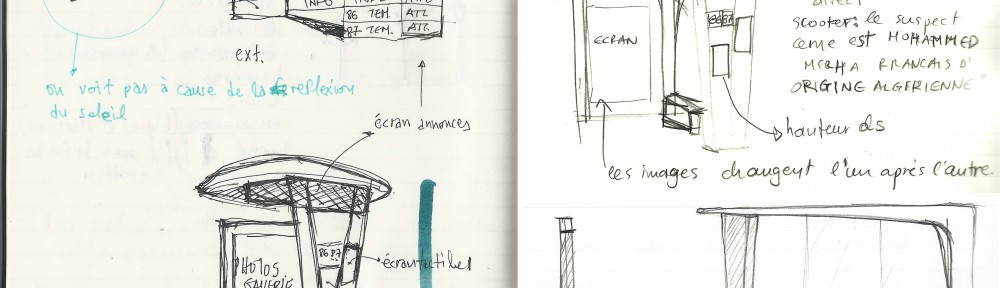 INFO
86 TEM. ATT.
87 TEM. ATT.
ext.
on voit pas à cause de la reflexion
du soleil
écran annonces
86 87
PHOTOS
GALERIE
écran tactiles
direct
scooter: le suspect
cerné est MOHAMMED
MERHA FRANCAIS D'
ORIGINE ALGERIENNE"
8687
ECRAN
hauteur ds
les images changent l'un après l'autre